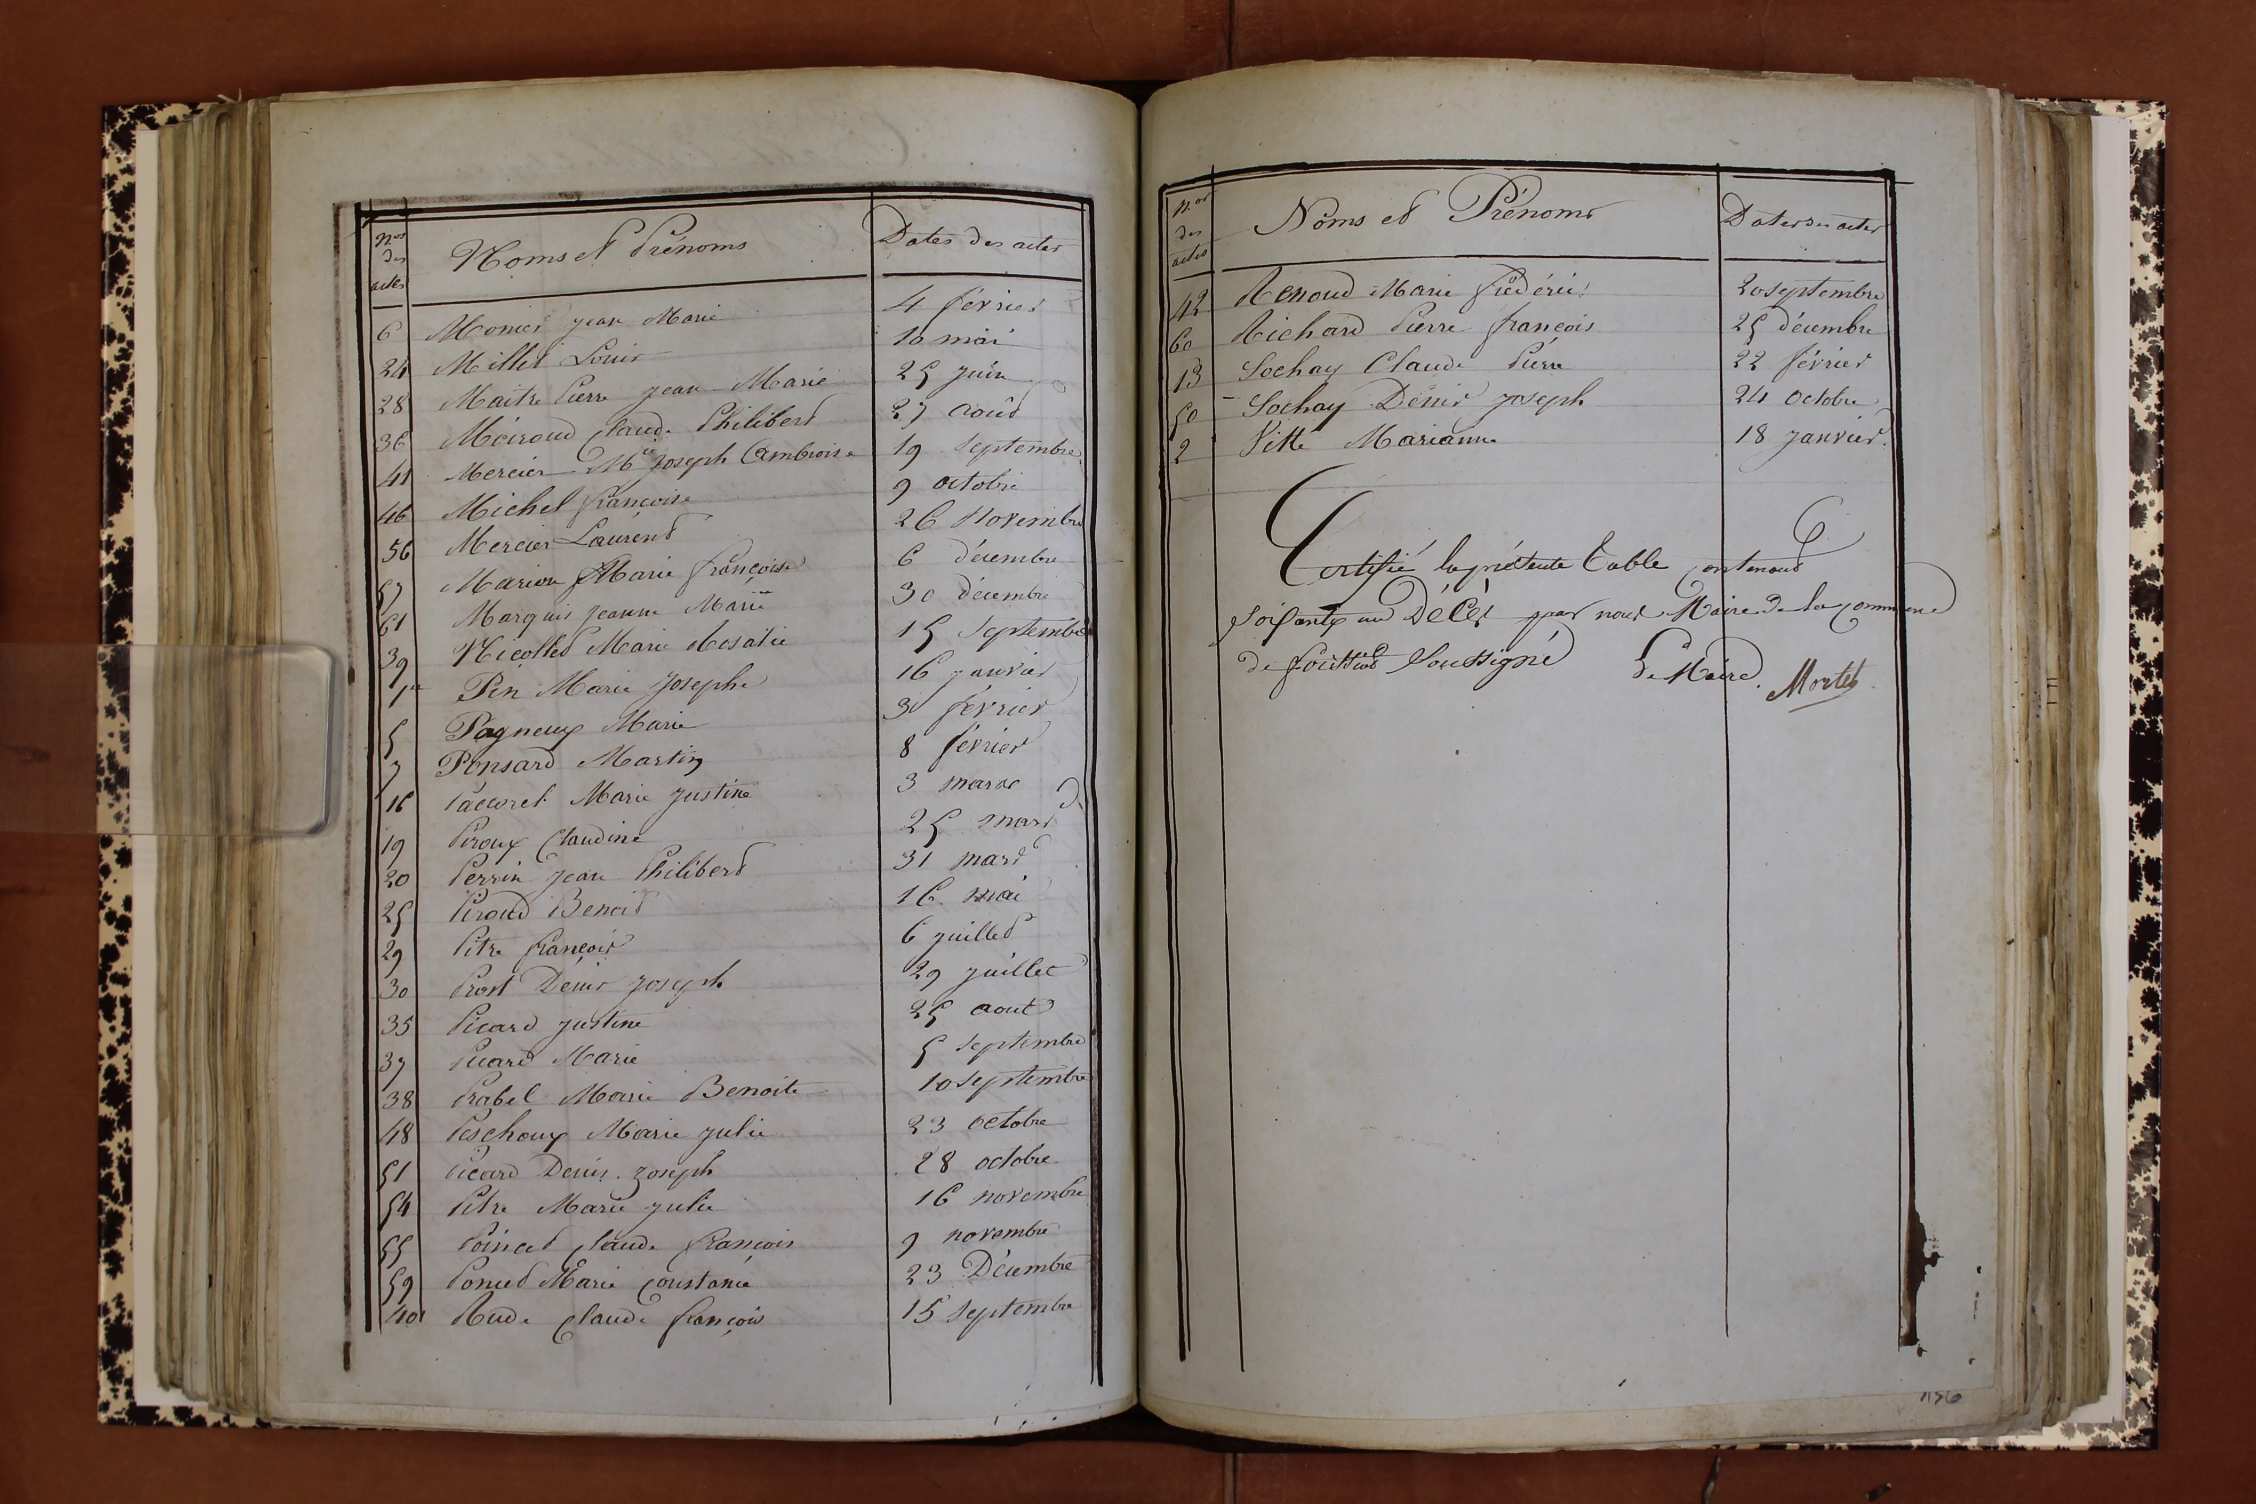 Nos des actes Noms et Prénoms Dates des actes
6 Monier jean Marie 4 février
24 Millet Louis 10 mai
28 Maitre Pierre jean Marie 25 juin
36 Méiroud Claude Philibert 27 août
41 Mercier Mie joseph Cambroise 19 septembre
46 Michel françoise 9 octobre
56 Mercier Laurent 26 Novembre
57 Marion Marie françoise 6 décembre
61 Marquis jeanne Marie 30 décembre
39 Nicollet Marie Rosalie 15 septembre
1er Pin Marie josephe 16 janvier
5 Pagneux Marie 3 février
7 Ponsard Martin 8 février
16 Marie justine 3 mars
19 Piroux Claudine 25 mars
20 Perrin jean Philibert 31 mars
25 Piroud Benoit 16 mai
29 Pitre françois 6 juillet
30 Prost Dénis joseph 29 juillet
35 Picard justine 25 aout
37 Picard Marie 5 septembre
38 Prabel Marie Benoite 10 septembre
48 Peschoux Marie julie 23 octobre
51 Picard Denis joseph 28 octobre
54 Pitre Marie julie 16 novembre
55 Poincet Claude françois 9 novembre
59 Poncet Marie Constance 23 Décembre
40 Rude Claude françois 15 septembre
Nos des actes Noms et Prénoms Dates des actes
42 Renoud Marie frédéric 20 septembre
60 Richard Pierre françois 25 décembre
13 Sochay Claude Pierre 22 février
50 Sochay Dénis joseph 24 octobre
2 Vitte Marianne 18 janvier
Certifié la présente Table contenant
soixante un Décès par nous Maire de la commune
de soussigné Le Maire. Mortel